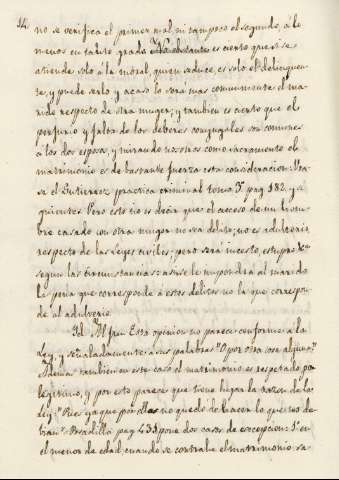 14.
no se verifica el primer mal, ni tampoco el segundo, á lo
menos en tanto grado. No obstante es cierto que si se
atiende solo á la moral, quien seduce, es solo el delincuen-
te, y puede serlo y acaso lo sera mas comunmente el ma-
rido respecto de otra muger; y tambien es cierto que el
perjurio y falta de los deberes conyugales son comunes
a los dos esposos, y mirando nosotros como sacramento el
matrimonio es de bastante fuerza esta consideracion: Vea-
se el Gutierrez practica criminal tomo 3º pag 182. y si-
guientes. Pero esto no es decir que el acceso de un hom-
bre casado con otra muger no sea delito; no es adulterio,
respecto de las leyes civiles; pero será incesto, estupro &c
segun las circunstancias: asi se le impondrá al marido
la pena que corresponde á estos delitos no la que correspon-
de al adulterio.
Id. Al fin Esta opinion no parece conforme a la
Ley, y señaladamente a sus palabras "O por otra cosa alguna,"
Ademas tambien en este caso el matrimonio es respetado por
legitimo, y por esto parece que tiene lugar la razon de la
Ley: "Pues ya que por ellos no quedó de hacer lo que no de-
bian". Pradilla pag 433 pone dos casos de excepcion: 1º en
el menor de edad, cuando se contrahe el matrimonio sa-